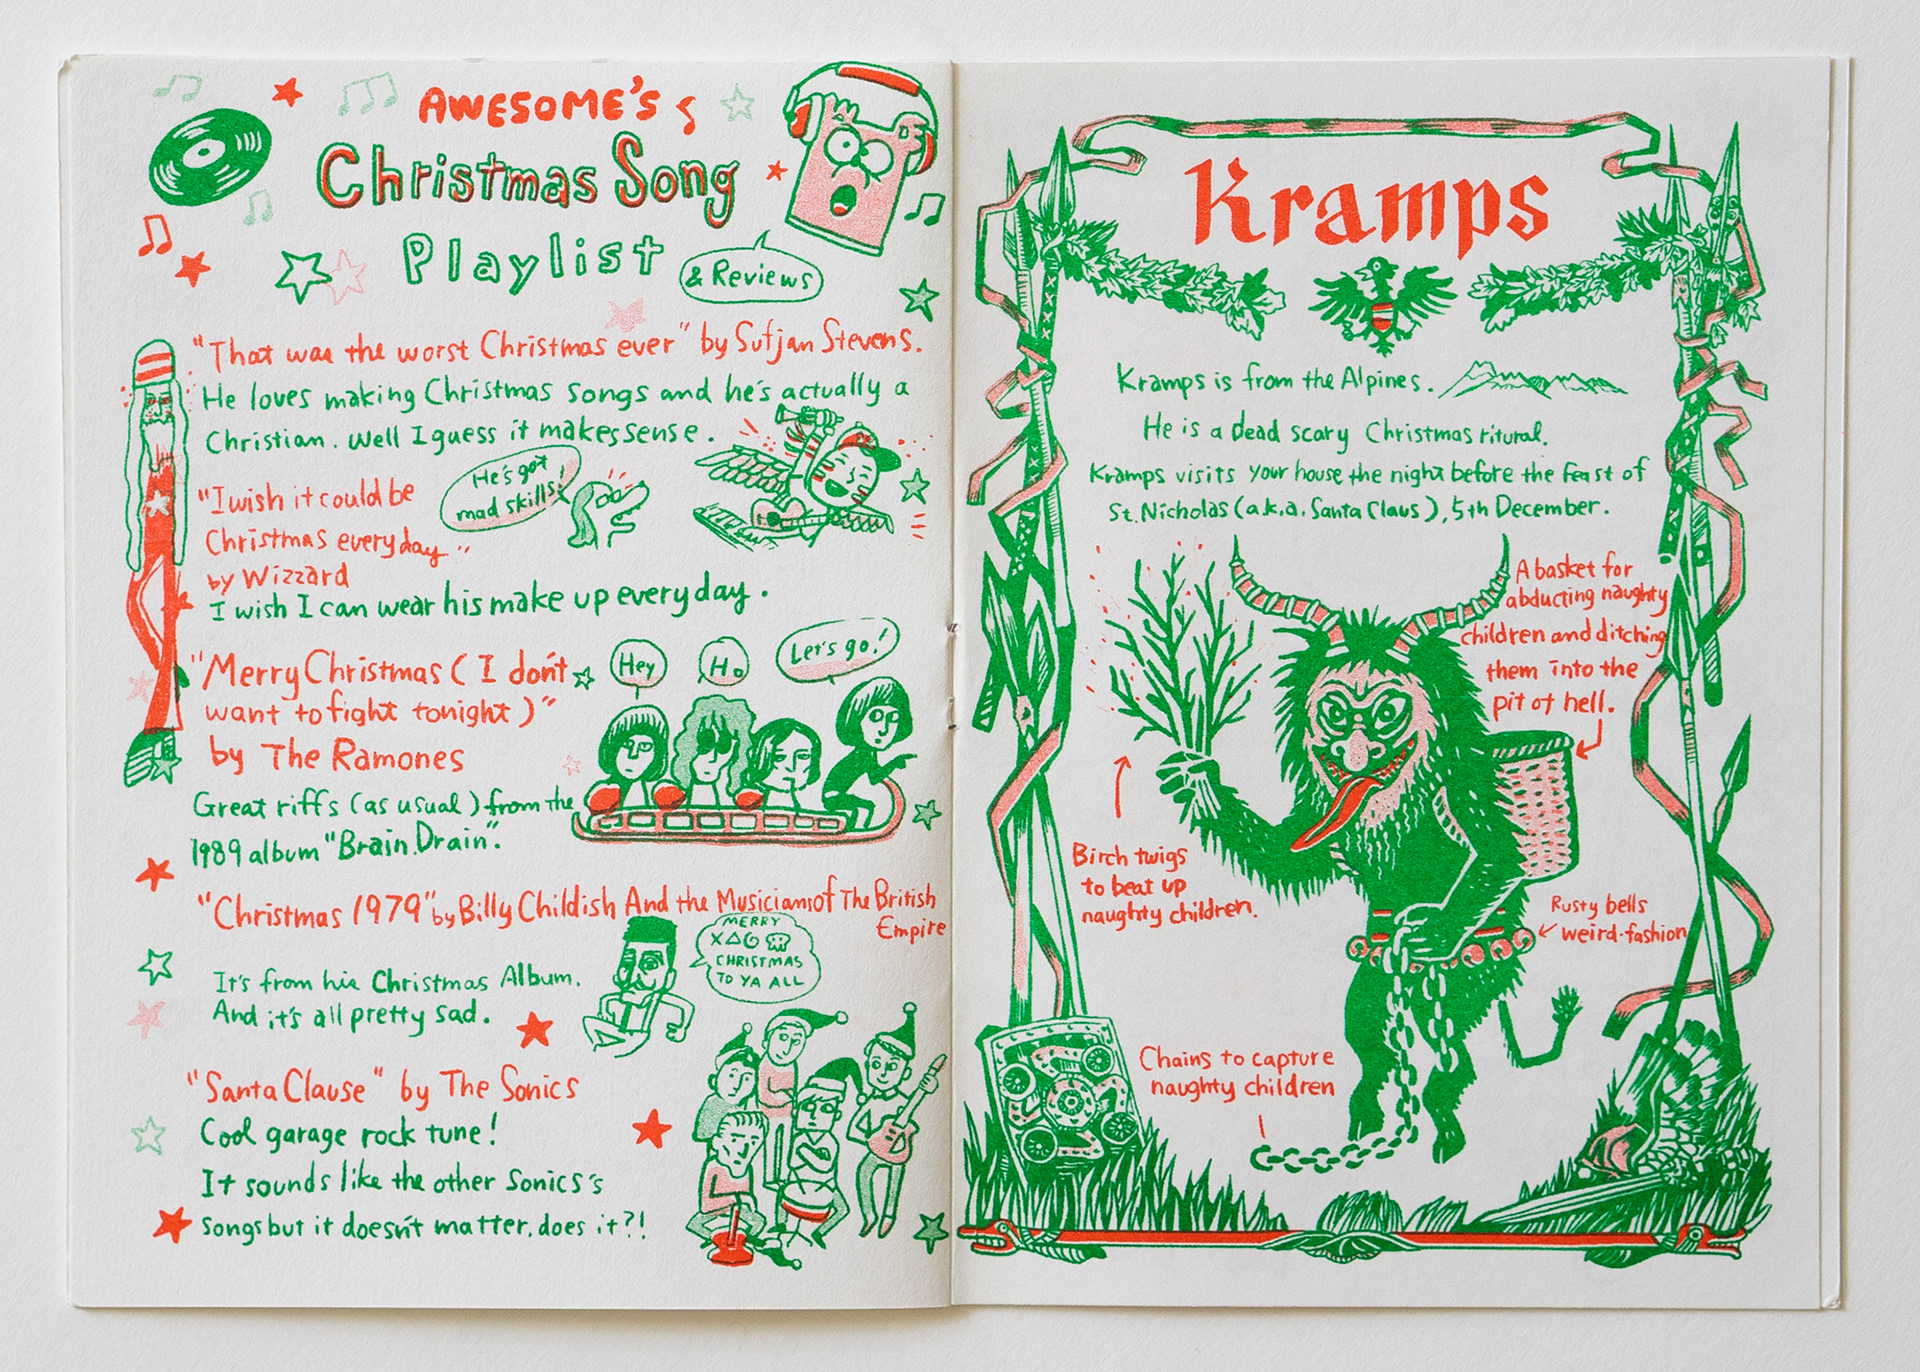 AWESOME'S
Christmas Song
Playlist
& Reviews
"That was the worst Christmas ever" by Sufjan Stevens.
He loves making Christmas songs and he's actually a
Christian. Well I guess it makes sense.
He's got
mad skills!
"I wish it could be
Christmas everyday"
by Wizzard
I wish I can wear his make up everyday.
"Merry Christmas (I don't
want to fight tonight)"
by The Ramones
Hey
Ho
Let's go!
Great riffs (as usual) from the
1989 album "Brain Drain".
"Christmas 1979" by Billy Childish And the Musicians of The British
Empire
MERRY
CHRISTMAS
TO YA ALL
It's from his Christmas Album.
And it's all pretty sad.
"Santa Clause" by The Sonics
Cool garage rock tune!
It sounds like the other Sonics's
songs but it doesn't matter, does it?!
Kramps
Kramps is from the Alpines.
He is a dead scary Christmas ritural.
Kramps visits your house the night before the feast of
St. Nicholas (a.k.a. Santa Claus), 5th December.
A basket for
abducting naughty
children and ditching
them into the
pit of hell.
Birch twigs
to beat up
naughty children.
Rusty bells
weird-fashion
Chains to capture
naughty children